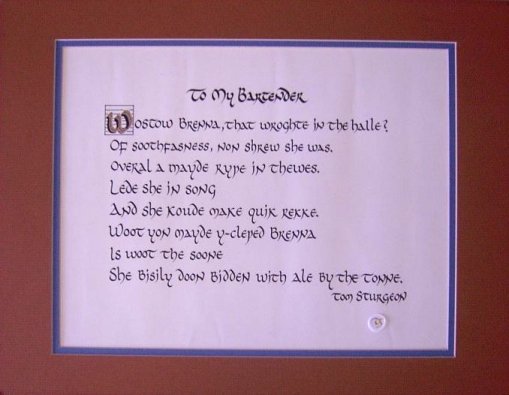 To My Bartender
Wostow Brenna, that wroghte in the halle?
Of soothfasness, non shrew she was.
Overal a mayde rype in thewes.
Lede she in song
And she koude make quik rekke.
Woot yon mayde y-cleped Brenna
Is woot the soone
She bisily doon bidden with ale by the tonne.
Tom Sturgeon